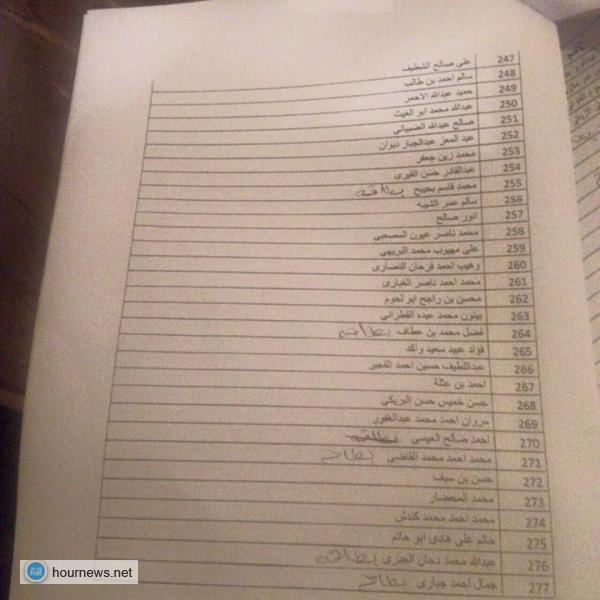 247 على صالح الشطيف
248 سالم احمد بن طالب
249 حميد عبدالله الاحمر
250 عبدالله محمد ابو الغيث
251 صالح عبدالله الضبياني
252 عبد المعز عبدالجبار دبوان
253 محمد زين جعفر
254 عبدالقادر حسن القيرى
255 محمد قاسم بحيبح بطاقه
256 سالم عمر الشيبه
257 انور صالح
258 محمد ناصر عبون المصعبي
259 على مهيوب محمد البريهي
260 وهيب احمد فرحان النصارى
261 محمد احمد ناصر الغبارى
262 محسن بن راجح ابو لحوم
263 بينون محمد عبده القطراني
264 فضل محمد بن عطاف بطاقه
265 فؤاد عبيد سعيد واكد
266 عبداللطيف حسين احمد الفجير
267 احمد بن عثلة
268 حسن خميس حسن البريكي
269 مروان احمد محمد عبدالغفور
270 احمد صالح العيسى بطاقه
271 محمد احمد محمد القاضي بطاقه
272 حسن بن سيف
273 محمد المحضار
274 محمد احمد محمد كندش
275 حاتم على هادى ابو حاتم
276 عبدالله محمد دحان الجبرى بطاقه
277 جمال احمد جبارى بطاقه
hournews.net